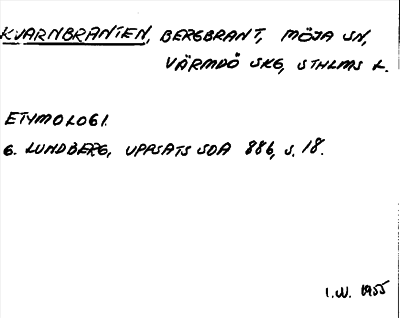 KVARNBRANTEN, BERGBRANT, MÖJA SN,
VÄRMDÖ SKG, STHLMS L.
ETYMOLOGI.
G. LUNDBERG, UPPSATS SOA 886, S. 18.
I.W. 1955